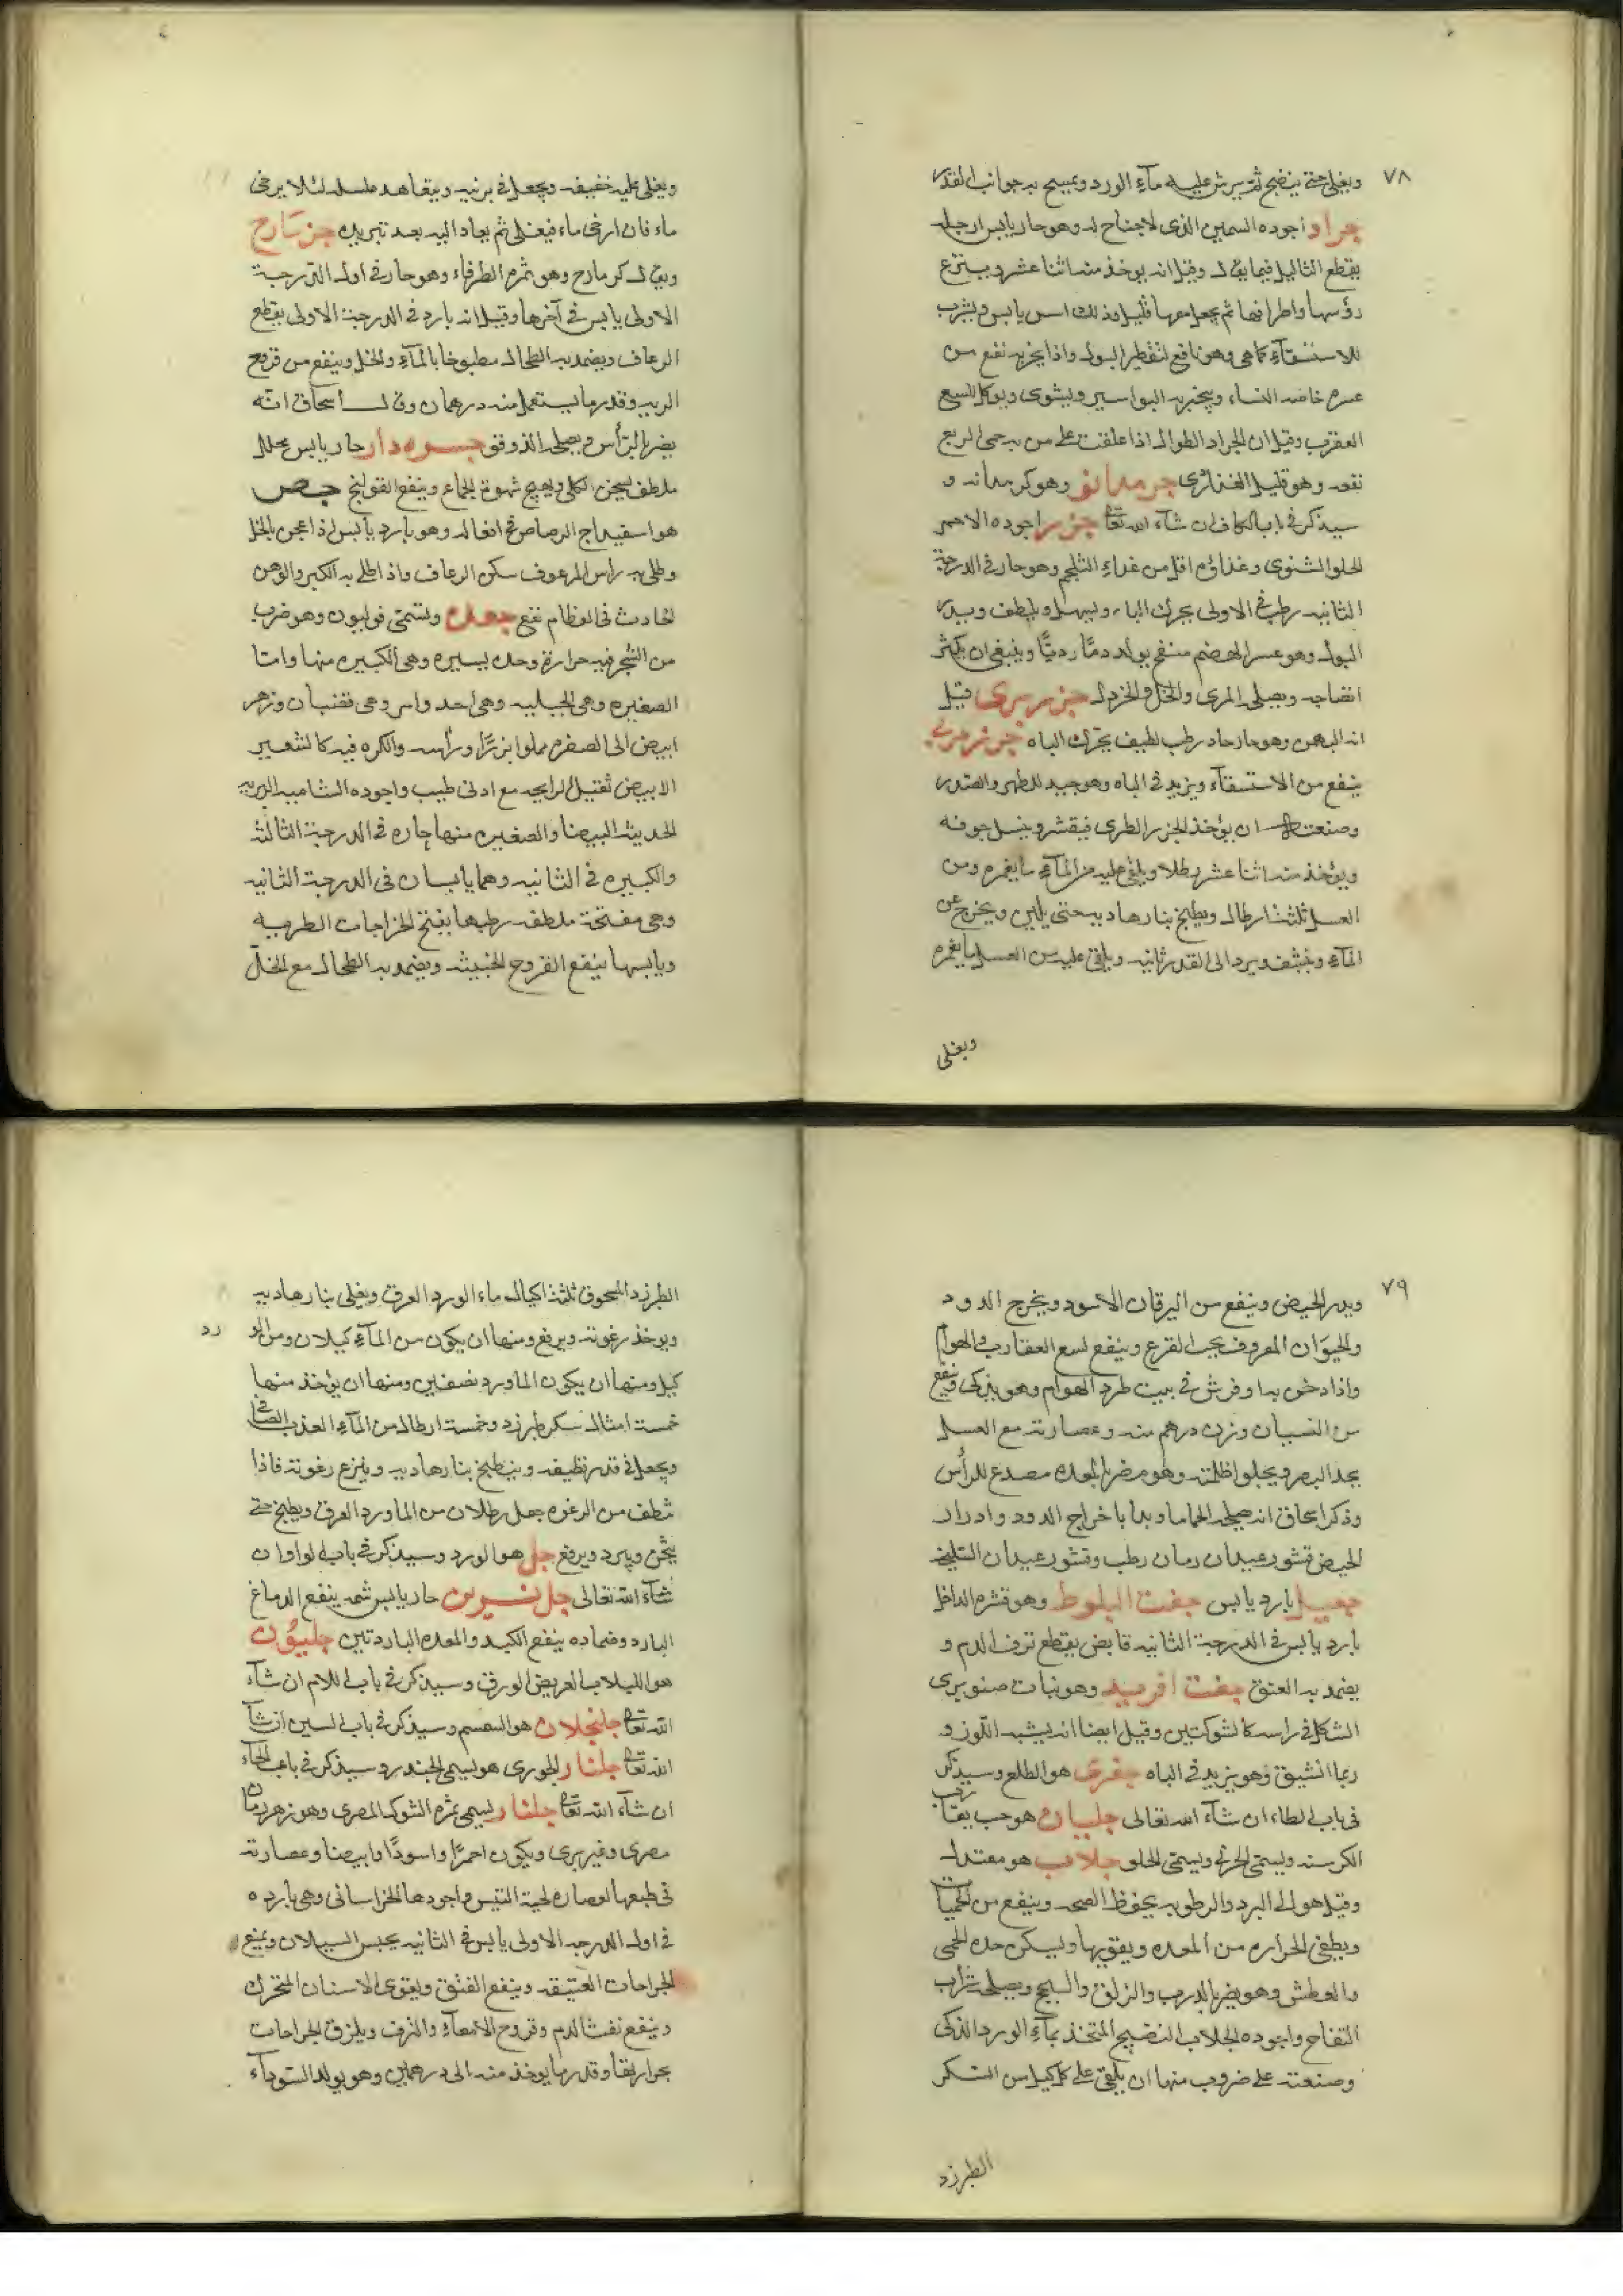 ٧٨
ويغلى حتى ينضج ثم يرش عليه ماء الورد ويمسح به جوانب القدر
جراد اجوده السمين الذى لا جناح له وهو حار يابس ارجله
يقطع الثاليل فيما يقال وقيل انه يوخذ منه اثنا عشر وينزع
رؤسها واطرافها ثم يجعل معها قليل اس يابس ويشرب
للاستسقآء كما هى وهو نافع لتقطير البول واذا بخر به نفع من
عسره خاصه النساء ويبخر به البواسير ويشوى ويوكل للسع
العقرب وقيل ان الجراد الطوال اذا علقت على من به حمى الربع
نفعه وهو قليل الغذاء جرمدانق وهو كرمدانه و
سيذكر فى باب الكاف ان شآء الله تعالى جزر اجوده الاحمر
الحلو الشتوى وغذاؤه اقل من غذاء الثلجم وهو حار فى الدرجة
الثانيه رطب فى الاولى يحرك الباه ويسهل ويلطف ويدر
البول وهو عسر الهضم منفخ يولد دمًا رديًا وينبغى ان يكثر
انضاجه ويصلحه المرى والخل والخردل جزر برى قيل
انه البهمن وهو حار حاد رطب لطيف يحرك الباه جزر مربى
ينفع من الاستسقآء ويزيد فى الباه وهو جيد للظهر والصدر
وصنعته ان يؤخذ الجزر الطرى فيقشر ويغسل جوفه
ويؤخذ منه اثنا عشر رطلا ويلقى عليه من المآء ما يغمره ومن
العسل ثلثة ارطال ويطبخ بنار هاديه حتى يلين ويخرج عن
المآء وينشف ويرد الى القدر ثانيه ويلقى عليه من العسل ما يغمره
ويغلى
ويغلى عليه خفيفه ويجعل فى برنيه ويتعاهد عسله لئلا يرخى
ماء فان ارخى ماء فيغلى ثم يعاد اليه بعد تبريده جزمازج
ويقال كزمازج وهو ثمرة الطرفاء وهو حار فى اول الدرجة
الاولى يابس فى آخرها وقيل انه بارد فى الدرجة الاولى يقطع
الرعاف ويضمد به الطحال مطبوخا بالمآء والخل وينفع من قروح
الريه وقدر ما يستعمل منه درهمان وقال اسحاق انه
يضر بالرأس ويصلحه الذوفو جسره دار حار يابس محلل
ملطف يسخن الكلى ويهيج شهوة الجماع وينفع القولنج جص
هو اسفيداج الرصاص فى افعاله وهو بارد يابس اذا عجن بالخل
وطلى به راس المرعوف سكن الرعاف واذا طلى به الكسر والوهن
الحادث فى العظام نفع جعده وتسمى فوليون وهو ضرب
من الشجر فيه حرارة وحده يسيره وهى الكبيره منها واما
الصغيره وهى الجبليه وهى احد وامر وهى قضبان وزهر
ابيض الى الصفره مملوا بزرًا وراسه كالكره فيه كالشعير
الابيض ثقيل الرايحه مع ادنى طيب واجوده الشاميه البريه
الحديثه البيضا والصغيره منها حاره فى الدرجة الثالثة
والكبيره فى الثانيه وهما يابسان فى الدرجة الثانيه
وهى مفتحة ملطفه رطبها يفتح الخراجات الطريه
ويابسها ينفع القروح الخبيثه ويضمد به الطحال مع الخل
٧٩
ويدر الحيض وينفع من اليرقان الاسود ويخرج الدود
والحيوان المعروف بحب القرع وينفع لسع العقارب والهوام
واذا دخن به او فرش فى بيت طرد الهوام وهو يذكى وينفع
من النسيان وزن درهم منه وعصارته مع العسل
يحد البصر ويجلوا ظلمته وهو مضر بالمعده مصدع للرأس
وذكر اسحاق انه يصلحه الحماما وبدله باخراج الدود وادرار
الحيض قشور عيدان رمان رطب وقشور عيدان السليخه
جميل بارد يابس جفت البلوط وهو قشره الداخل
بارد يابس فى الدرجة الثانيه قابض يقطع نزف الدم و
يضمد به الفتق جفت افريد وهو نبات صنوبرى
الشكل فى راسه كالشوكتين وقيل ايضا انه يشبه اللوز و
ربما انشق وهو يزيد فى الباه جفرى هو الطلع وسيذكر
فى باب الطاء ان شآء الله تعالى جلبان هو حب يقارب
الكرسنه ويسمى الخرفى ويسمى الخلر جلاب هو معتدل
وقيل هو الى البرد والرطوبه يحفظ الصحه وينفع من الحميات
ويطفى الحراره من المعده ويقويها ويسكن حده الحمى
والعطش وهو يضر بالذرب والزلق والسحج ويصلحه شراب
التفاح واجوده الجلاب النضيج المتخذ بمآء الورد الذكى
وصنعته على ضروب منها ان يلقى على كل كيل من السكر
الطبرزد
الطبرزد المسحوق ثلثة اكيال ماء الورد العرق ويغلى بنار هاديه
ويوخذ رغوته ويرفع ومنها ان يكون من المآء كيلان ومن الورد
كيل ومنها ان يكون الماورد نصفين ومنها ان يؤخذ منها
خمسة امثال سكر طبرزد وخمسة ارطال من المآء العذب الصافى
ويجعل فى قدر نظيفه ويطبخ بنار هاديه وينزع رغوته فاذا
نظف من الرغوه جعل رطلان من الماورد العرق ويطبخ حتى
يثخن ويبرد ويرفع جل هو الورد وسيذكر فى باب الواو ان
شآء الله تعالى جل نسرين حار يابس شمه ينفع الدماغ
البارد وضماده ينفع الكبد والمعده الباردتين جلبوب
هو اللبلاب العريض الورق وسيذكر فى باب اللام ان شآء
الله تعالى جلجلان هو السمسم وسيذكر فى باب السين ان شآ
الله تعالى جلنار الجورى هو يسمى الجندرد وسيذكر فى باب الحاء
ان شآء الله تعالى جلنار يسمى ثمره الشوك المصرى وهو زهر رمان
مصرى وغير برى ويكون احمرًا واسودًا وابيضا وعصارته
فى طبعها لعصاره لحية التيس واجودها الخراسانى وهى بارده
فى اول الدرجه الاولى يابس فى الثانيه يحبس السيلان ويمنع
الجراحات العتيقه وينفع الفتق ويقوى الاسنان المتحرك
وينفع نفث الدم وقروح الامعآء والنزف ويلزق الجراحات
بحرارتها وقدر ما يوخذ منه الى درهمين وهو يولد السودآء